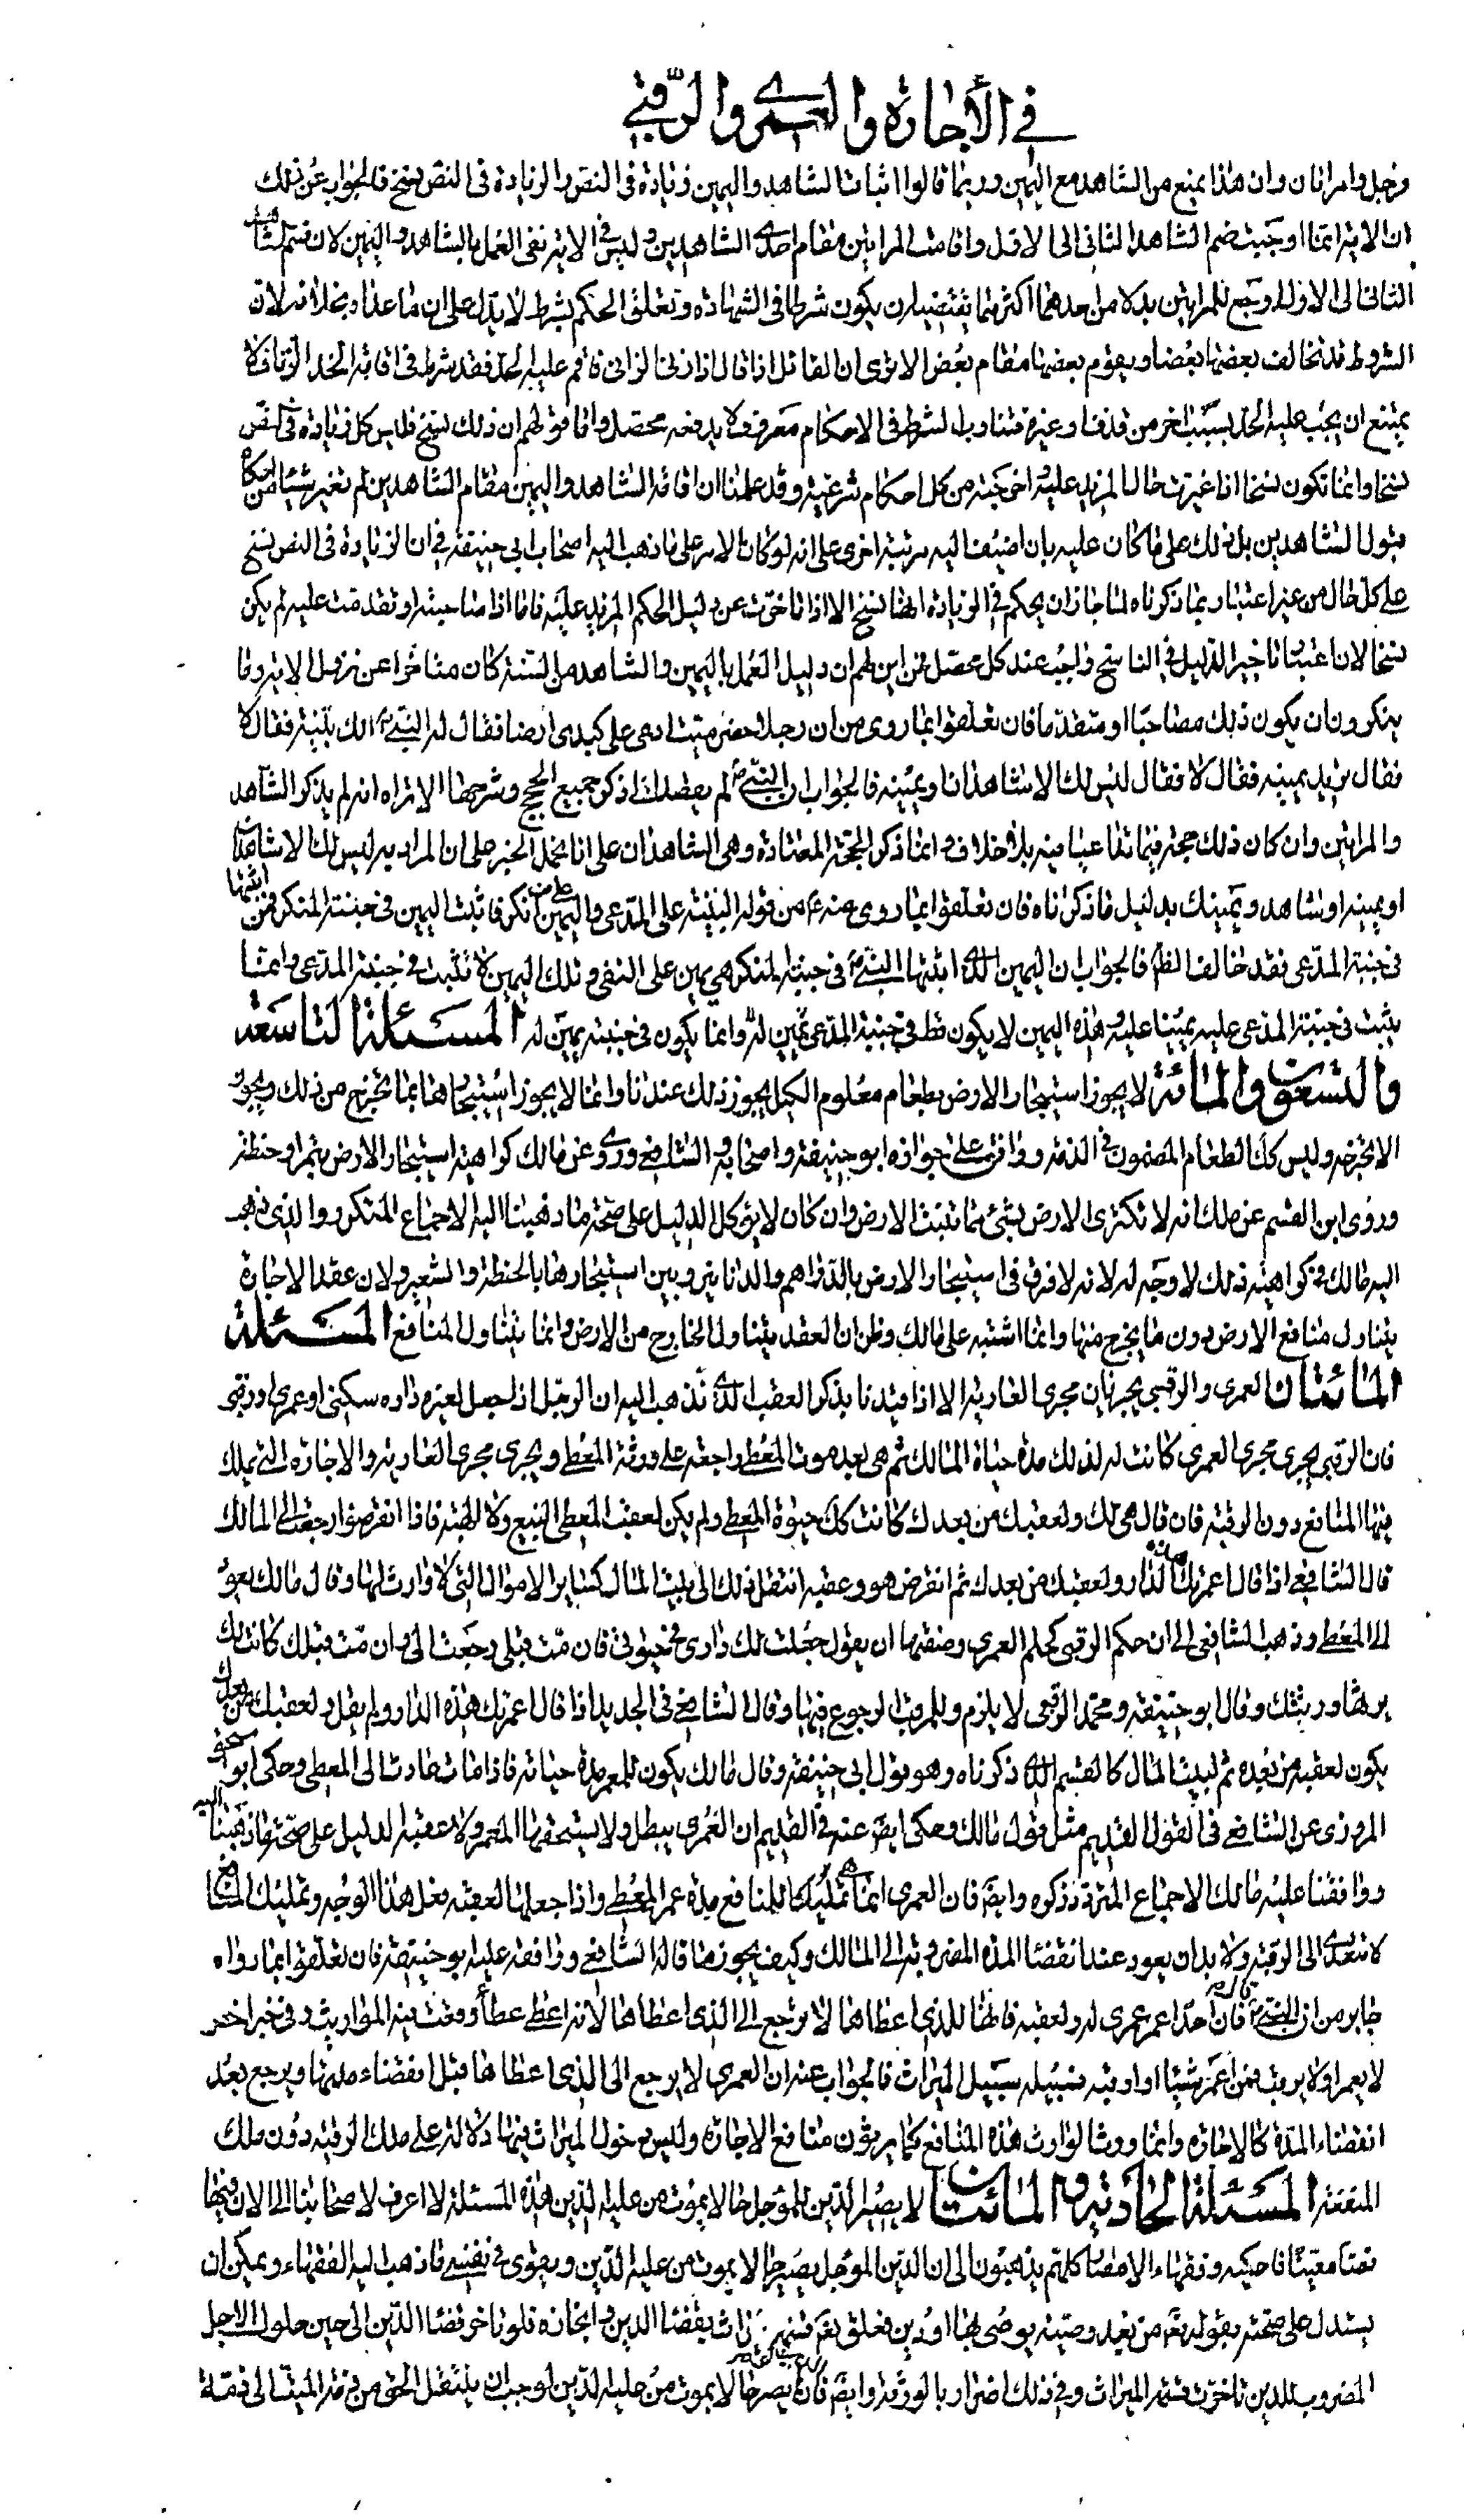 في الأجارة والعمرى والرقبى
فرجل وامراتان وان هذا يمنع من الشاهد مع اليمين وربما قالوا اثبات الشاهد واليمين زيادة في النص والزيادة في النص نسخ فالجواب عن ذلك
ان الاية انما اوجبت ضم الشاهد الثاني الى الاول واقامت المراتين مقام احدى الشاهدين وليس في الاية نفى العمل بالشاهد واليمين لان ضم الشاهد
الثاني الى الاول او جمع المراتين بدلا من احدهما اكثر مما يقتضيه ان يكون شرطا في الشهادة وتعلق الحكم بشرط لا يدل على ان ما عداه بخلافه لان
الشروط قد تخالف بعضها بعضا ويقوم بعضها مقام بعض الا ترى ان القائل اذا قال اذا زنى الزاني فاقم عليه الحد فقد شرط في اقامة الحد الزنا ولا
يمتنع ان يجب عليه الحد بسبب اخر من قذف او غيره وتناوب الشرط في الاحكام معروف لا يدفعه محصل واما قولهم ان ذلك نسخ فليس كل زيادة في النص
نسخا وانما تكون نسخا اذا غيرت حال المزيد عليه اخرجته من كل احكام شرعية وقد علمنا ان اقامة الشاهد واليمين مقام الشاهدين لم تغير شيئا من احكام
قبول الشاهدين بل ذلك على ما كان عليه بان اضيف اليه مرتبة اخرى على انه لو كان الامر على ما ذهب اليه اصحاب ابي حنيفة في ان الزيادة في النص نسخ
على كل حال من غير اعتبار بما ذكرناه لما جاز ان يحكم في الزيادة انها نسخ الا اذا تاخرت عن دليل الحكم المزيد عليه فاما اذا صاحبته او تقدمت عليه لم يكن
نسخا لان اعتبار تاخير الدليل في الناسخ واجب عند كل محصل فمن اين لهم ان دليل العمل باليمين والشاهد من السنة كان متاخرا عن نزول الاية وما
ينكرون ان يكون ذلك مصاحبا او متقدما فان تعلقوا بما روى من ان رجلا حضر ميتا ادعى على كندى ارضا فقال له النبي ص الك بينة فقال لا
فقال تريد يمينه فقال لا فقال ليس لك الا شاهدان او يمينه فالجواب ان النبي ص لم يقصد الى ذكر جميع الحجج وشرحها الا تراه انه لم يذكر الشاهد
والمراتين وان كان ذلك حجة فيما تداعيا فيه بلا خلاف وانما ذكر الحجة المعتادة وهي الشاهدان على انا نحمل الخبر على ان المراد به ليس لك الا شاهدان
او يمينه او شاهد ويمينك بدليل ما ذكرناه فان تعلقوا بما روى عنه ع من قوله البينة على المدعى واليمين على من انكر فاثبت اليمين في جنبة المنكر فمن اثبتها
في جنبة المدعى فقد خالف الظ فالجواب ان اليمين التي اثبتها النبي ص في جنبة المنكر هي يمين على النفى وتلك اليمين لا تثبت في جنبة المدعى وانما
يثبت في جنبة المدعى عليه يمينا عليه وهذه اليمين لا يكون قط في جنبة المدعى يمين له وانما يكون في جنبته يمين له المسئلة التاسعة
والتسعون والمائة لا يجوز استيجار الارض بطعام معلوم الكيل يجوز ذلك عندنا وانما لا يجوز استيجارها بما يخرج من ذلك ويجوز
الا تخرجه وليس كك الطعام المضمون في الذمة ووافق على جوازه ابو حنيفة واصحابه والشافعي وروى عن مالك كراهية استيجار الارض بتمر او حنطة
وروى ابن القسم عن مالك انه لا تكترى الارض بشئ مما تنبت الارض وان كان لا يؤكل الدليل على صحة ما ذهبنا اليه الاجماع المتكرر والذي ذهب
اليه مالك في كراهية ذلك لا وجه له لانه لا فرق في استيجار الارض بالدراهم والدنانير وبين استيجارها بالحنطة والشعير ولان عقد الاجارة
يتناول منافع الارض دون ما يخرج منها وانما اشتبه على مالك وظن ان العقد يتناول الخارج من الارض وانما يتناول المنافع المسئلة
المائتان العمرى والرقبى يجريان مجرى العارية الا اذا قيدنا بذكر العقب الذي نذهب اليه ان الرجل اذا جعل لغيره داره سكنى او عمرى او رقبى
فان الرقبى يجرى مجرى العمرى كانت له لذلك مدة حياة المالك ثم هي بعد موت المعطى راجعة على ورثة المعطى ويجرى مجرى العارية والاجارة التي يملك
فيها المنافع دون الرقبة فان قال هي لك ولعقبك من بعدك كانت كك حيوة المعطى ولم يكن لعقب المعطى البيع ولا الهبة فاذا انقرضوا رجعت الى المالك
قال الشافعي اذا قال اعمرتك هذه الدار ولعقبك من بعدك ثم انقرض هو وعقبه انتقل ذلك الى بيت المال كساير الاموال التي لا وارث لها وقال مالك يعود
الى المعطى وذهب الشافعي الى ان حكم الرقبى كحكم العمرى وصفتها ان يقول جعلت لك دارى في حيوتي فان مت قبلي رجعت الى وان مت قبلك كانت لك
يرثها ورثتك وقال ابو حنيفة ومحمد الرقبى لا يلزم وللمرقب الرجوع فيها وقال الشافعي في الجديد اذا قال اعمرتك هذه الدار ولم يقل ولعقبك من بعدك
يكون لعقبه من بعده ثم لبيت المال كالقسم الذي ذكرناه وهو قول ابي حنيفة وقال مالك يكون للمعمر مدة حياته فاذا مات عادت الى المعطى وحكى ابو اسحق
المروزي عن الشافعي في القول القديم مثل قول مالك وحكى ايضا عنه في القديم ان العمرى يبطل ولا يستحقها المعمر ولا عقبه الدليل على صحة ما ذهبنا اليه
ووافقنا عليه مالك الاجماع المتردد ذكره وايضا فان العمرى انما هي تمليكا للمنافع مدة عمر المعطى واذا جعلها لعقبه فعلى هذا الوجه وتمليك المنافع
لا تتعدى الى الرقبة ولا بد ان يعود عند انقضاء المدة المضروبة الى المالك وكيف يجوز ما قاله الشافعي ووافقه عليه ابو حنيفة فان تعلقوا بما رواه
جابر من ان النبي ص قال من اعمر عمرى له ولعقبه فانها للذي اعطاها لا ترجع الى الذي اعطاها لانه اعطى عطاء وقعت فيه المواريث وفي خبر اخر
لا يعمر ولا يرقب فمن اعمر شيئا او ارقبه فسبيله سبيل الميراث فالجواب عنه ان العمرى لا يرجع الى الذي اعطاها قبل انقضاء مدتها ويرجع بعد
انقضاء المدة كالاجارة وانما ورثنا الوارث هذه المنافع كما يرثون منافع الاجارة وليس دخول الميراث فيها دلالة على ملك الرقبة دون ملك
المنفعة المسئلة الحادية والمائتان لا يصير الدين المؤجل حالا بموت من عليه الدين هذه المسئلة لا اعرف لاصحابنا الى الان فيها
نصا معينا فاحكيه وفقهاء الامصار كلهم يذهبون الى ان الدين المؤجل يصير حالا بموت من عليه الدين ويقوى في نفسي ما ذهب اليه الفقهاء ويمكن ان
يستدل على صحته بقوله تع من بعد وصية يوصى بها او دين فعلق تع قسمة الميراث بقضاء الدين وانجازه فلو تاخر قضاء الدين الى حين حلول الاجل
المضروب للدين تاخرت قسمة الميراث وفي ذلك اضرار بالورثة وايضا فان لم يصر حالا بموت من عليه الدين لوجب ان ينتقل الحق من ذمة الميت الى ذمة